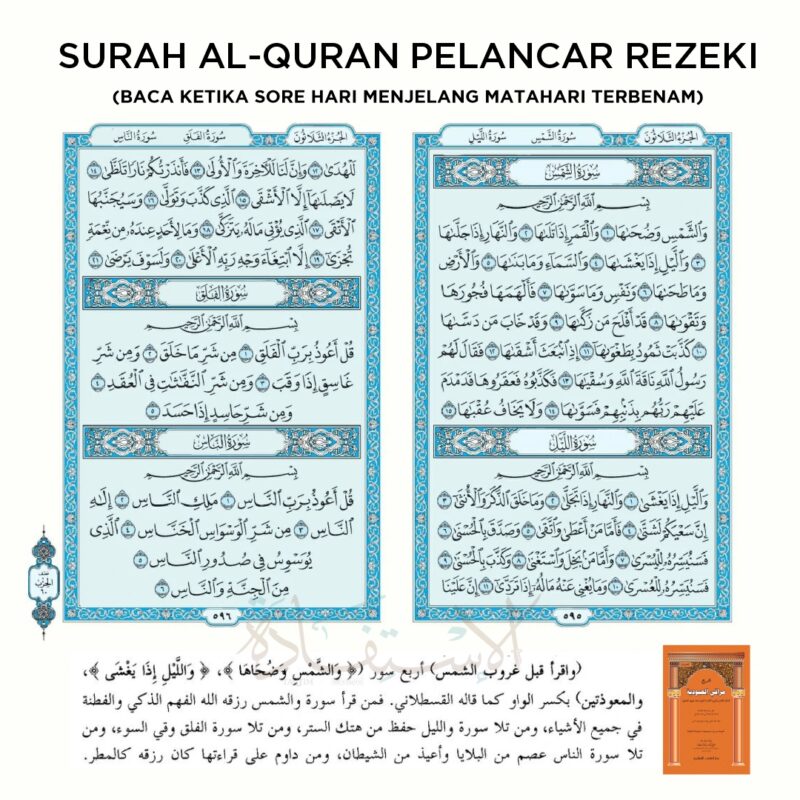 SURAH AL-QURAN PELANCAR REZEKI
(BACA KETIKA SORE HARI MENJELANG MATAHARI TERBENAM)
الجزء الثلاثون سورة الشمس سورة الليل
سورة الشمس
بسم الله الرحمن الرحيم
وَالشَّمْسِ وَضُحَىٰهَا ١ وَالْقَمَرِ إِذَا تَلَىٰهَا ٢ وَالنَّهَارِ إِذَا جَلَّىٰهَا
٣ وَاللَّيْلِ إِذَا يَغْشَىٰهَا ٤ وَالسَّمَاءِ وَمَا بَنَىٰهَا ٥ وَالْأَرْضِ
وَمَا طَحَىٰهَا ٦ وَنَفْسٍ وَمَا سَوَّىٰهَا ٧ فَأَلْهَمَهَا فُجُورَهَا
وَتَقْوَىٰهَا ٨ قَدْ أَفْلَحَ مَن زَكَّىٰهَا ٩ وَقَدْ خَابَ مَن دَسَّىٰهَا
١٠ كَذَّبَتْ ثَمُودُ بِطَغْوَىٰهَا ١١ إِذِ انۢبَعَثَ أَشْقَىٰهَا ١٢ فَقَالَ لَهُمْ
رَسُولُ اللَّهِ نَاقَةَ اللَّهِ وَسُقْيَـٰهَا ١٣ فَكَذَّبُوهُ فَعَقَرُوهَا فَدَمْدَمَ
عَلَيْهِمْ رَبُّهُم بِذَنۢبِهِمْ فَسَوَّىٰهَا ١٤ وَلَا يَخَافُ عُقْبَـٰهَا ١٥
سورة الليل
بسم الله الرحمن الرحيم
وَاللَّيْلِ إِذَا يَغْشَىٰ ١ وَالنَّهَارِ إِذَا تَجَلَّىٰ ٢ وَمَا خَلَقَ الذَّكَرَ وَالْأُنثَىٰ ٣
إِنَّ سَعْيَكُمْ لَشَتَّىٰ ٤ فَأَمَّا مَنْ أَعْطَىٰ وَاتَّقَىٰ ٥ وَصَدَّقَ بِالْحُسْنَىٰ ٦
فَسَنُيَسِّرُهُ لِلْيُسْرَىٰ ٧ وَأَمَّا مَن بَخِلَ وَاسْتَغْنَىٰ ٨ وَكَذَّبَ بِالْحُسْنَىٰ ٩
فَسَنُيَسِّرُهُ لِلْعُسْرَىٰ ١٠ وَمَا يُغْنِي عَنْهُ مَالُهُ إِذَا تَرَدَّىٰ ١١ إِنَّ عَلَيْنَا
٥٩٥
الجزء الثلاثون سورة الفلق سورة الناس
لَلْهُدَىٰ ١٢ وَإِنَّ لَنَا لَلْآخِرَةَ وَالْأُولَىٰ ١٣ فَأَنذَرْتُكُمْ نَارًا تَلَظَّىٰ ١٤
لَا يَصْلَىٰهَا إِلَّا الْأَشْقَى ١٥ الَّذِي كَذَّبَ وَتَوَلَّىٰ ١٦ وَسَيُجَنَّبُهَا
الْأَتْقَى ١٧ الَّذِي يُؤْتِي مَالَهُ يَتَزَكَّىٰ ١٨ وَمَا لِأَحَدٍ عِندَهُ مِن نِّعْمَةٍ
تُجْزَىٰ ١٩ إِلَّا ابْتِغَاءَ وَجْهِ رَبِّهِ الْأَعْلَىٰ ٢٠ وَلَسَوْفَ يَرْضَىٰ ٢١
سورة الفلق
بسم الله الرحمن الرحيم
قُلْ أَعُوذُ بِرَبِّ الْفَلَقِ ١ مِن شَرِّ مَا خَلَقَ ٢ وَمِن شَرِّ
غَاسِقٍ إِذَا وَقَبَ ٣ وَمِن شَرِّ النَّفَّـٰثَـٰتِ فِي الْعُقَدِ ٤
وَمِن شَرِّ حَاسِدٍ إِذَا حَسَدَ ٥
سورة الناس
بسم الله الرحمن الرحيم
قُلْ أَعُوذُ بِرَبِّ النَّاسِ ١ مَلِكِ النَّاسِ ٢ إِلَـٰهِ
النَّاسِ ٣ مِن شَرِّ الْوَسْوَاسِ الْخَنَّاسِ ٤ الَّذِي
يُوَسْوِسُ فِي صُدُورِ النَّاسِ ٥
مِنَ الْجِنَّةِ وَالنَّاسِ ٦
نصف
الحزب
٦٠
٥٩٦
الإستفادة
(واقرأ قبل غروب الشمس) أربع سور (﴿ وَالشَّمْسِ وَضُحَاهَا ﴾، ﴿ وَاللَّيْلِ إِذَا يَغْشَى ﴾،
والمعوذتين) بكسر الواو كما قاله القسطلاني. فمن قرأ سورة والشمس رزقه الله الفهم الذكي والفطنة
في جميع الأشياء، ومن تلا سورة والليل حفظ من هتك الستر، ومن تلا سورة الفلق وقي السوء، ومن
تلا سورة الناس عصم من البلايا وأعيذ من الشيطان، ومن داوم على قراءتها كان رزقه كالمطر.
شرح
مراقي العبودية